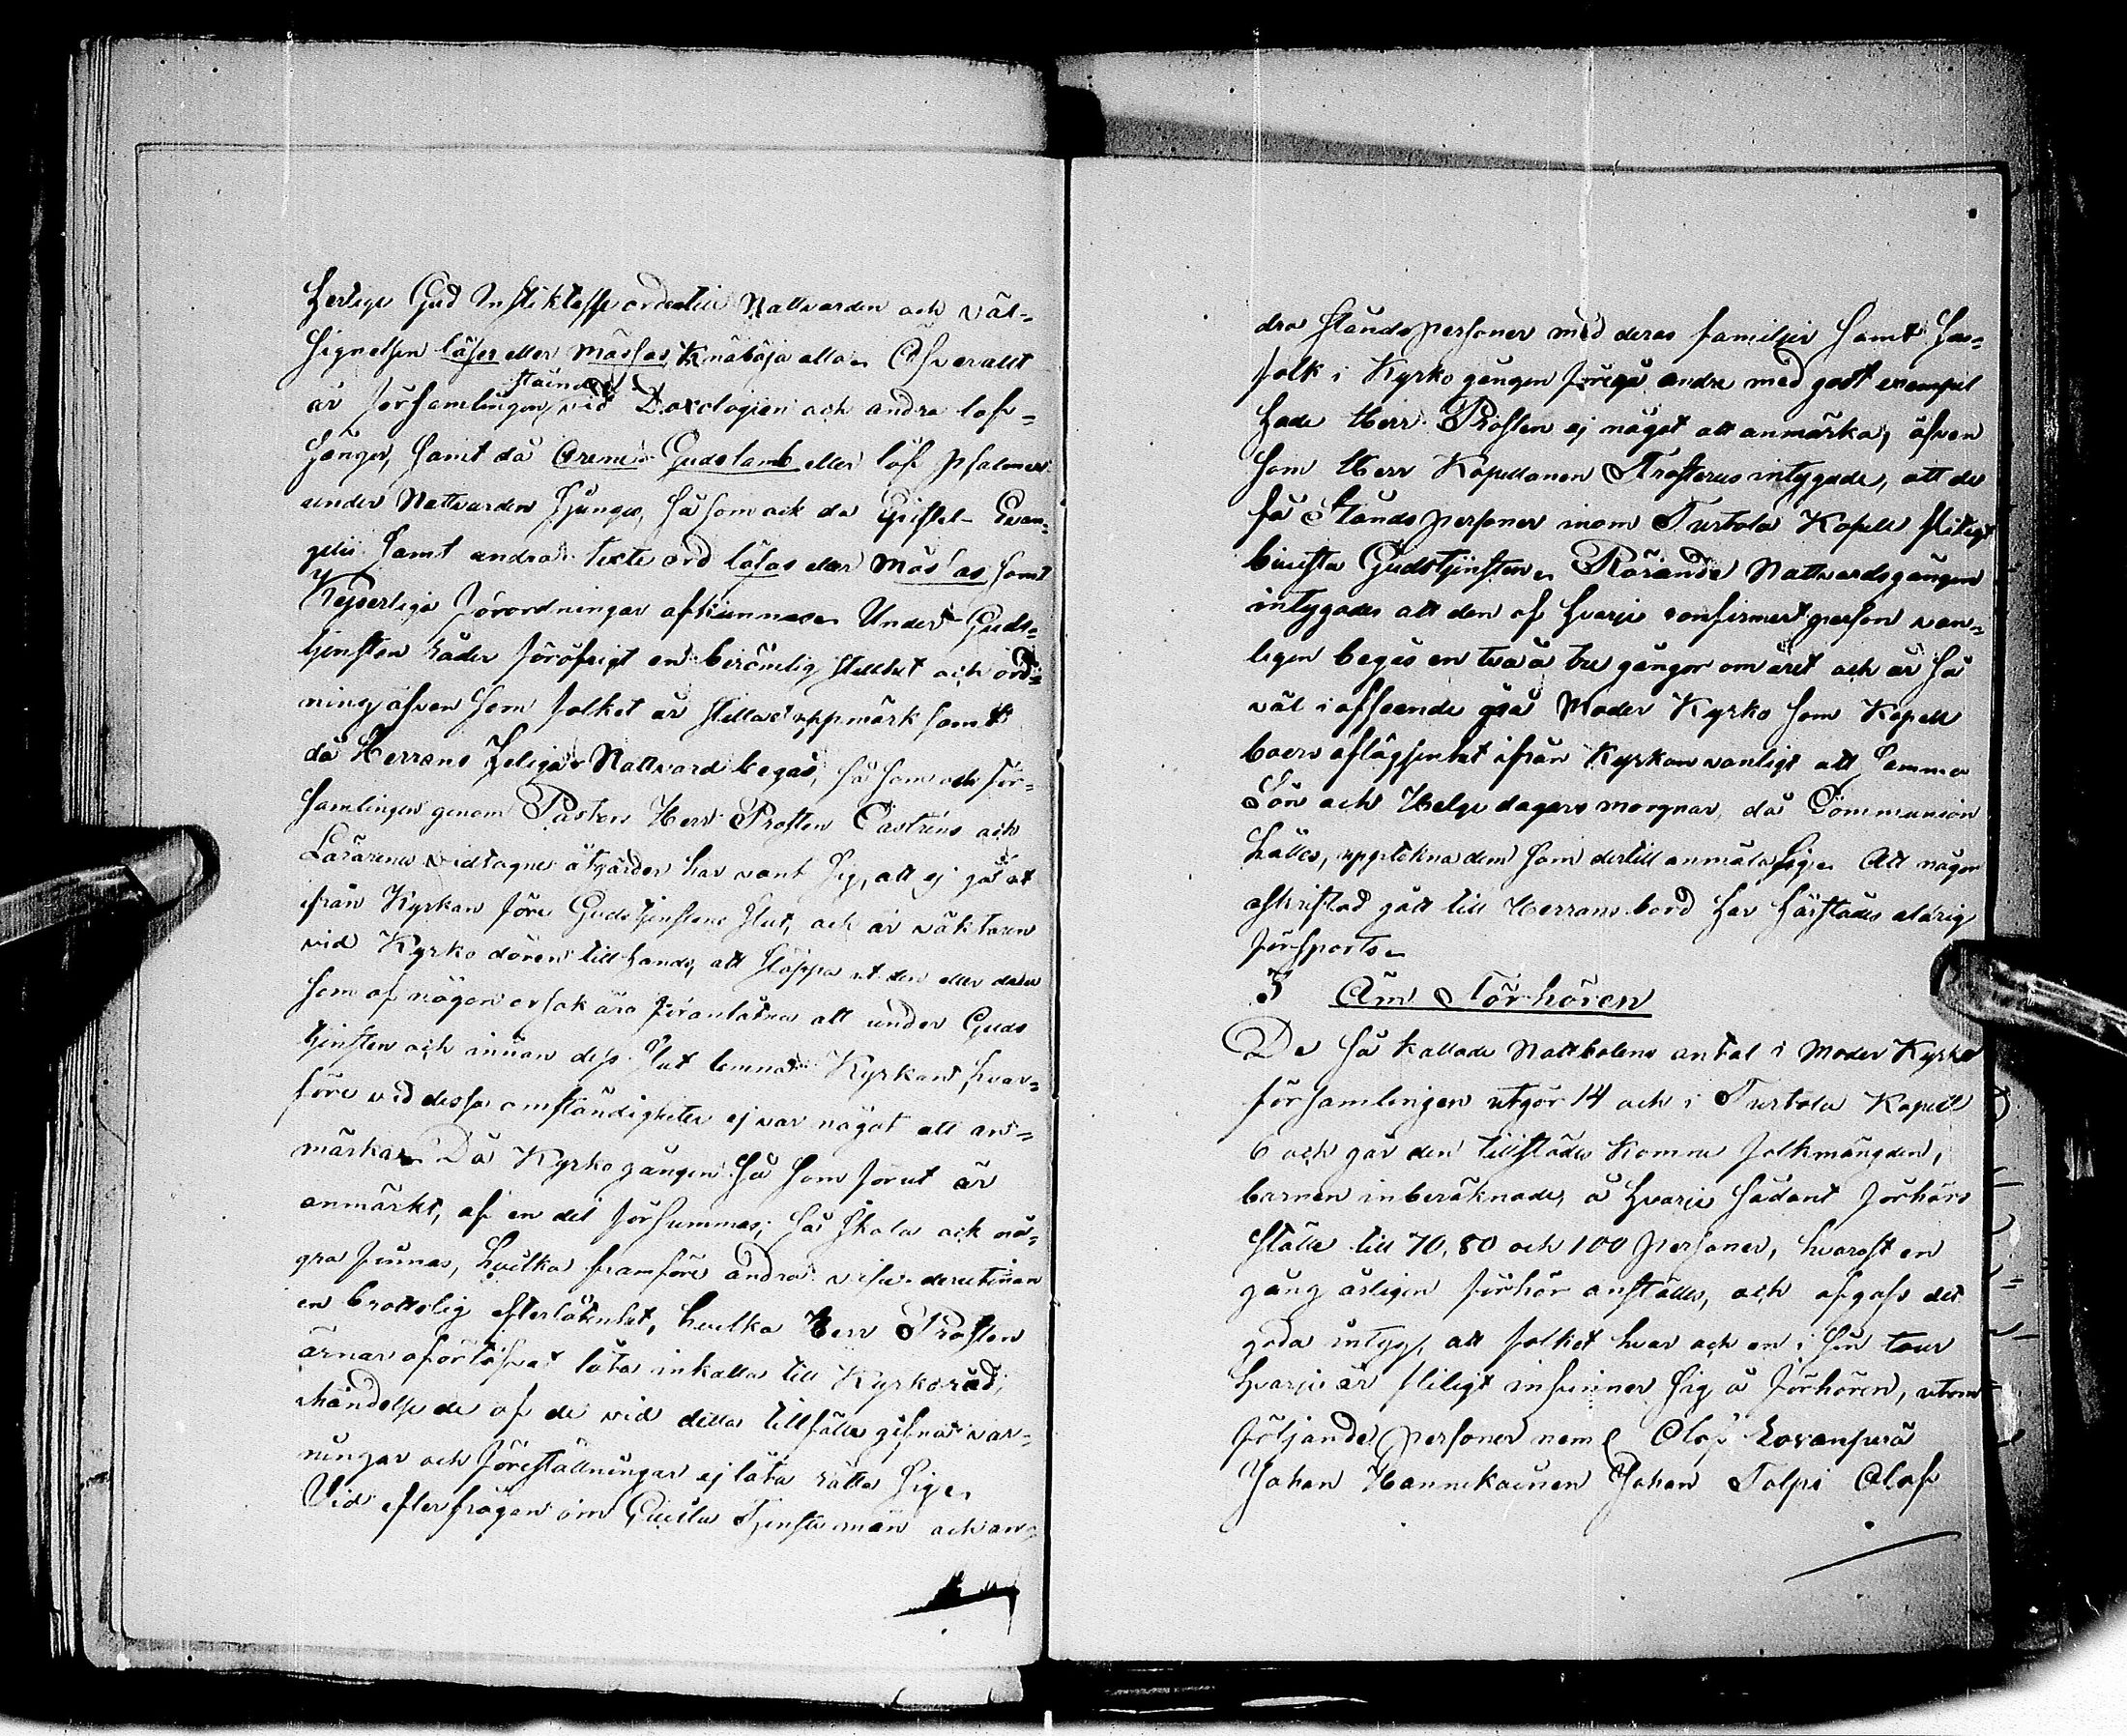 helige Gud Instiktelse orden till Nattvarden och väl-
signelsen läses eller mässas, knäböja alla. Öfverallt
är Församlingen stående vid Doxologien och andra lof-
sånger, samt då O rene Guds lamb eller lof psalmer
under Nattvarden sjunges, så som ock då Epistel- Evan-
gelii samt andra texte ord läsas eller mässas samt
Kejserliga Förordningar afkunnas. Under Guds-
tjensten råder föröfrigt en berömlig stillhet och ord-
ning äfven som folket är stilla och uppmärksamt
då Herrans Heliga Nattvard begås, så som ock För-
samlingen genom Pastor Herr Prosten Castréns och
Lärarenes vidtagne åtgärder har vant sig, att ej gå ut
ifrån Kyrkan före Gudstjenstens slut, och är väktaren
vid Kyrko dören till hands, att släppa ut den eller dem
som af någon orsak äro föranlåtna att under Guds
tjensten och innan dess slut lemna Kyrkan, hvar-
före vid dessa omständigheter ej var något att an-
märka. Då Kyrkogången så som förut är
anmärkt, af en del försummas, så skola ock nå-
gra finnas, hvilka framföre andra visa derutinnan
en brottslig efterlåtenhet, hvilka Herr Prosten
ärnar ofördröjat låta inkalla till Kyrkoråd,
i händelse de af de vid detta tillfälle gifna var-
ningar och föreställningar ej låta rätta sig.
Vid efterfrågan om Civila Tjenstemän och an-
dra ståndspersoner med deras familjer samt hus-
folk i Kyrko gången föregå andra med godt exempel
hade Herr Prosten ej något att anmärka, äfven
som Herr Kapellanen Frosterus intygade, att de
få Stånds personer inom Turtola Kapell flitigt
bevista Gudstjensten. Rörande Nattvardsgången
intygades att den af hvarje confirmert person van-
ligen begås en två à tre gångor om året och är så
väl i afseende på Moder Kyrko som Kapell
boers aflägsenhet ifrån Kyrkan vanligt att samma
Sön och Helge dagars morgnar, då Communion
hålles, uppteckna dem som dertill anmäla sig. Att någon
oskriftad gått till Herrans bord har härstädes aldrig
försports.
5 Om Förhören
De så kallade Nattbolens antal i Moder Kyrko
församlingen utgör 14 och i Turtola Kapell
6 och går den tillstädes komna folkmängden,
barnen inberäknade, å hvarje sådant förhörs
ställe till 70, 80 och 100 personer, hvarest en
gång årligen förhör anställes, och afgafs det
goda intyg, att folket hvar och en i sin tour
hvarje år flitigt infinner sig å förhören, utom
följande personer neml Olof Lovanperä
Johan Hannikainen Johan Tolpi Olof